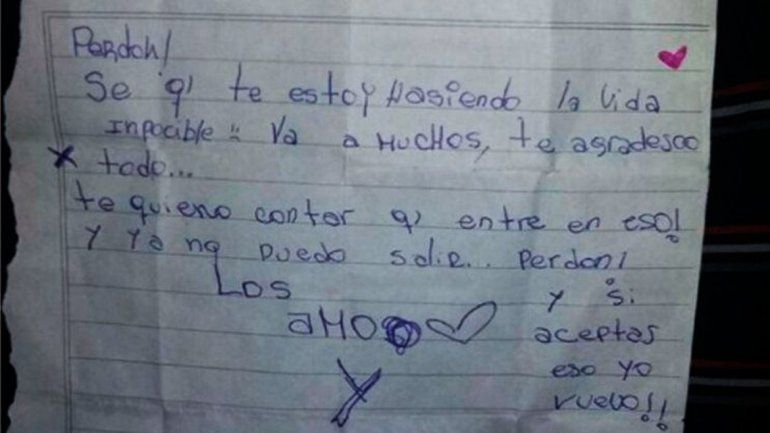 Perdon!
Se q' te estoy Hasiendo la Vida
Inpocible :: Va a MUCHOS, te agradesco
x todo...
te quiero contar q' entre en eso!
y Ya no puedo salir... Perdon!
LOS
aMO
y si
aceptas
eso yo
vuevo!!
Y